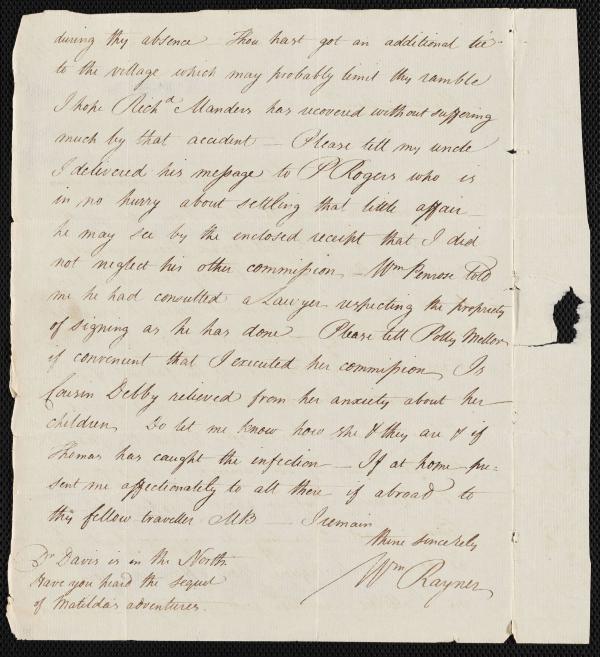 during thy absence — Thou hast got an additional tie
to the village which may probably limit thy ramble
I hope Rech.d Manders has recovered without suffering
much by that accident — Please tell my uncle
I delivered his message to P Rogers who is
in no hurry about settling that little affair —
he may see by the enclosed receipt that I did
not neglect his other commission — Wm Penrose told
me he had consulted a Lawyer respecting the propriety
of signing as he has done — Please tell Polly Mellor
if convenient that I executed her commission, Is
Cousin Debby relieved from her anxiety about her
children Do let me know how she & they are & if
Thomas has caught the infection — If at home pre=
sent me affectionately to all there if abroad to
thy fellow traveller MB — I remain
thine sincerely
Wm Rayner
Dr Davis is in the North
Have you heard the sequel
of Matildas adventures.